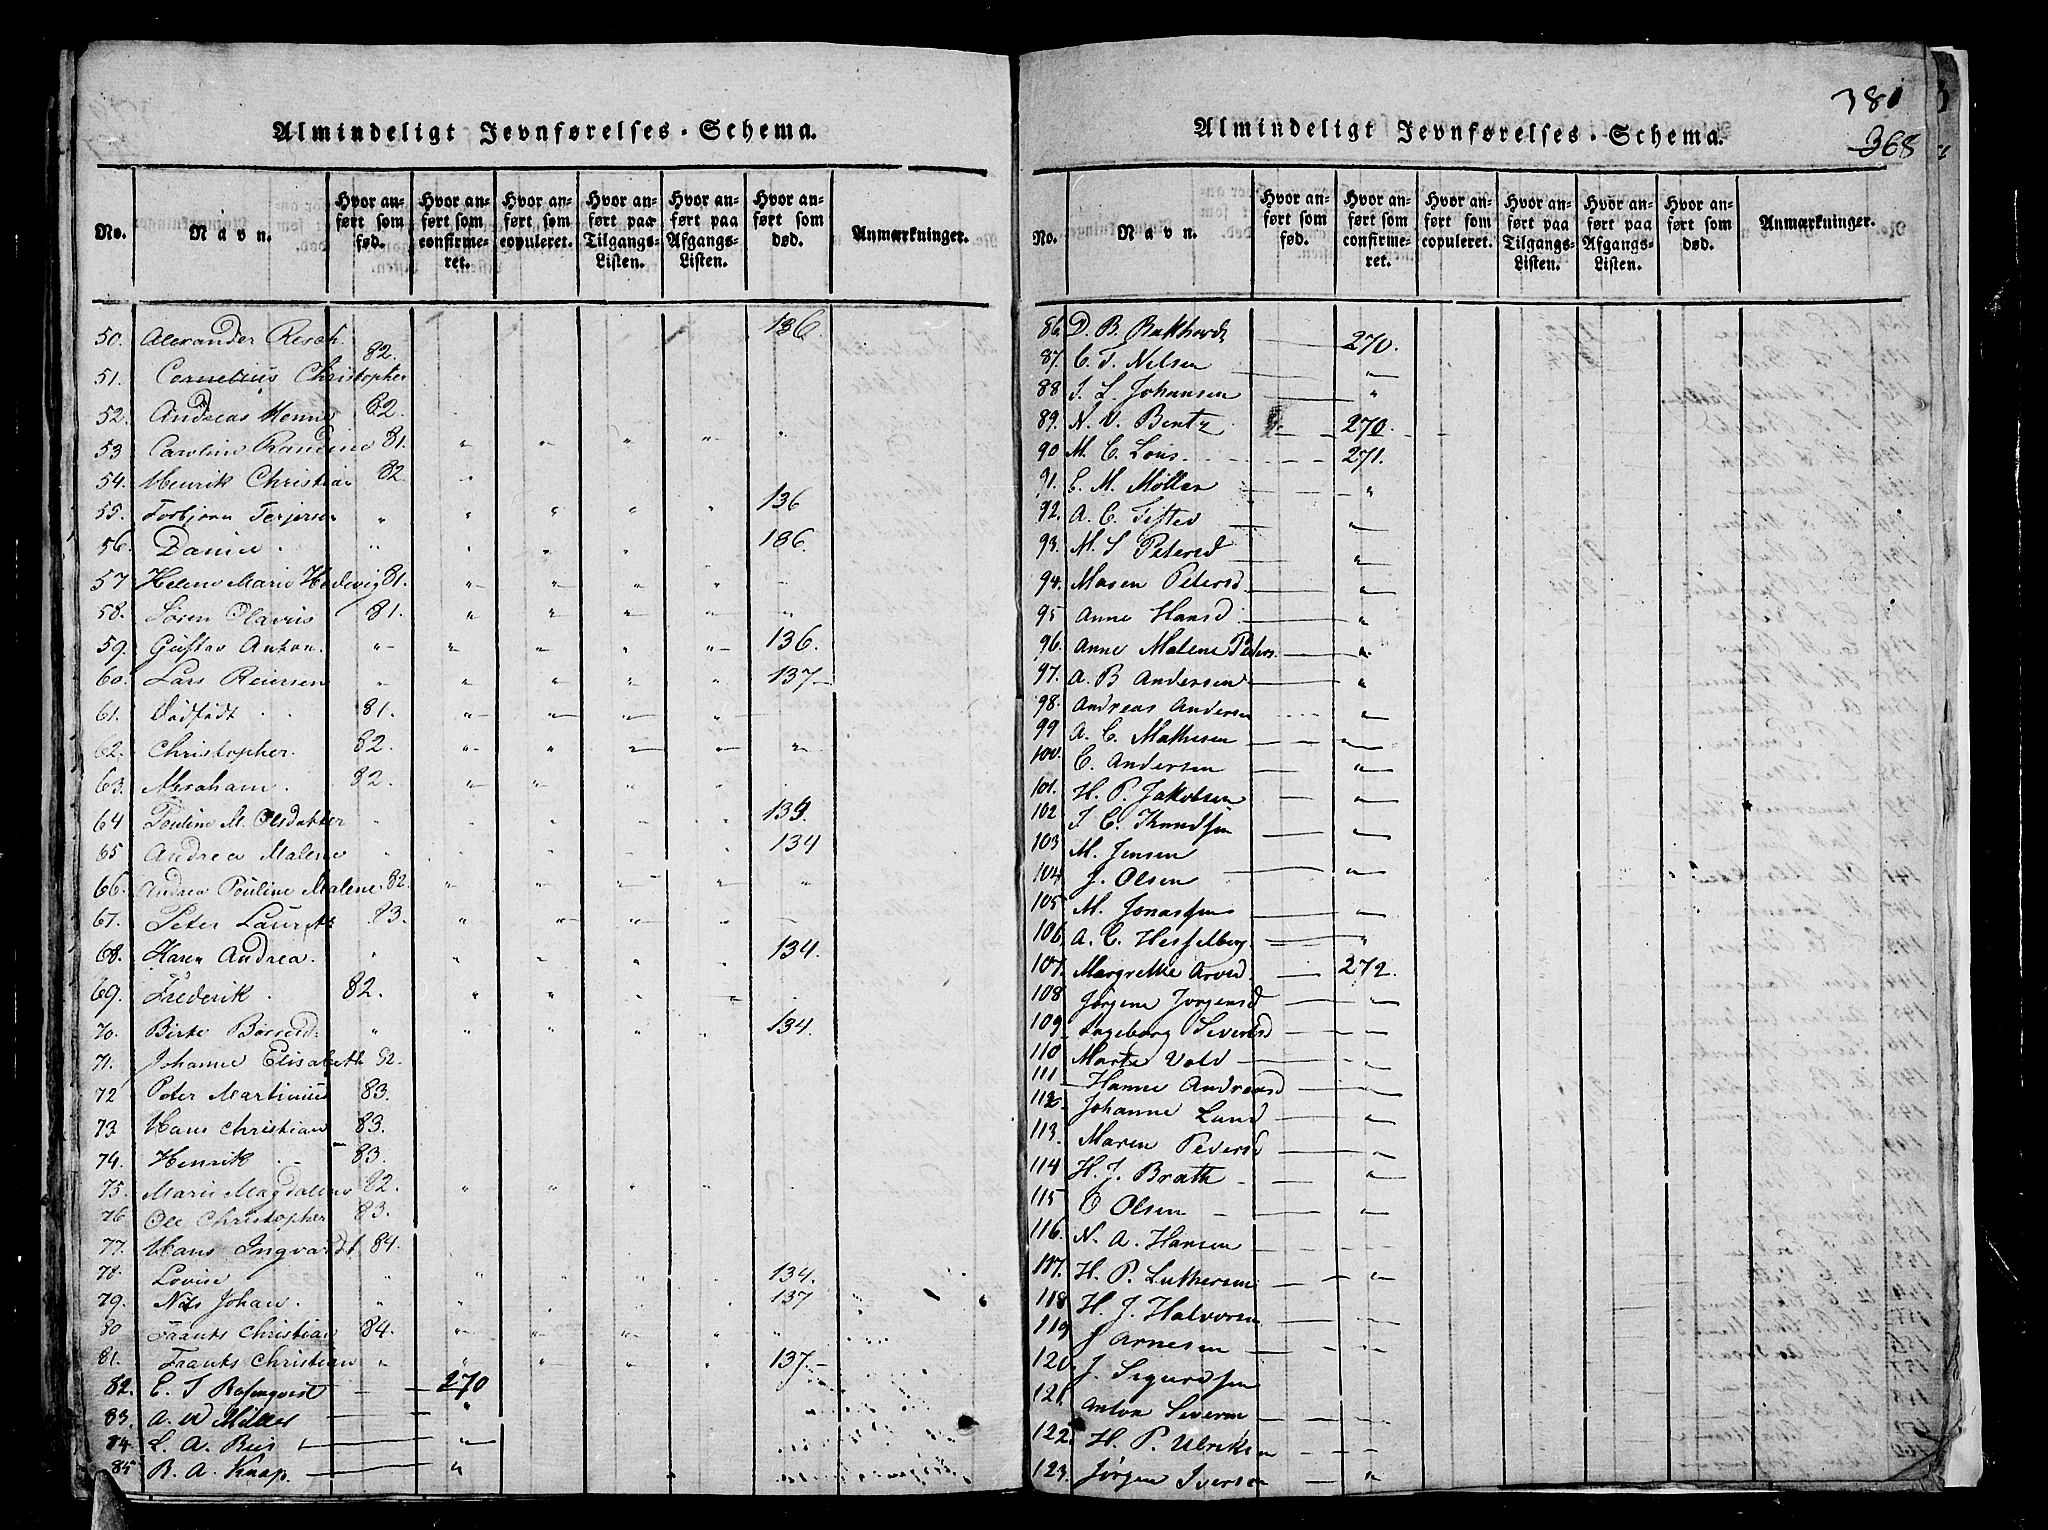 Almindeligt Jevnførelses-Schema.
No. Navn. Hvor anført som fød. Hvor anført som confirmeret. Hvor anført som copuleret. Hvor anført paa Tilgangs-Listen. Hvor anført paa Afgangs-Listen. Hvor anført som død. Anmærkninger.
50. Alexander Resch. 136
51. Cornelius Christopher 82.
52. Andreas 82.
53 Caroline Randine 81. " " " " "
54. Henrik Christian 82. "
55. Torbjørn Terjersen " " " " " 136
56. Daniel . " " " " 136.
57 Helene Marie Hedevig 81. " " " "
58. Søren Olavus 81. " " " " "
59. Gustav Anton. " " " " " 136.
60. Lars Reiersen " " " " " 137
61. Dødfødt 81. " " " "
62. Christopher. 82. " " " " "
63. Abraham. 82. " "
64 Pouline M. Olsdatter " " " "
65 Andrea Malene " " " " 134
66. Andrea Pouline Malene. 82. " " " " "
67. Peter Laurits 83. " " "
68. Karen Andrea. " " " " " 134.
69. Frederik . 82. " " "
70. Birte " " " " " 134.
71. Johanne Elisabeth 82.
72 Peter Martinius 83.
73. Hans Christian 83.
74. Henrik 83.
75. Maria Magdalene 82. " " " "
76 Ole Christopher 83.
77. Hans Ingvardt 84.
78. Lovise " " " " " 134.
79. Nils Johan. " " " " 137
80 Frants Christian 84. " " " " "
81. Frants Christian " " " " " 137.
82. E. S Rosenqvist 270
83. A. W Miller "
84. L. A. Bies "
85 R. A. Knap. "
381
368
Almindeligt Jevnførelses-Schema.
No. Navn. Hvor anført som fød. Hvor anført som confirmeret. Hvor anført som copuleret. Hvor anført paa Tilgangs-Listen. Hvor anført paa Afgangs-Listen. Hvor anført som død. Anmærkninger.
86 D. B. 270.
87. C. T. Nilsen "
88 J. L. Johansen "
89. N. V. Bentz 270
90 M. C. Lous. 271.
91. E. M. Møller "
92. A. C. "
93. M. S Petersd "
94. Maren Petersd "
95 Anne Hansd "
96. Anne Malene Peders. "
97. A. B Andersen "
98. Andreas Andersen "
99 A. C. Mathisen "
100. C. Andersen "
101. H. P. Jakobsen "
102 J. C. Knudsen "
103 M. Jensen
104 J. Olsen "
105 M. Jonassen "
106 A. C. Hesselberg "
107. Margrethe Arvesd. 272.
108 Jørgine Jørgensd "
109 Ingeborg Siversd "
110 Marte Vold "
111 Hanne Andreasd "
112 Johanne Lund "
113. Maren Pedersd
114 H. J. Brath "
115 O Olsen "
116. N. A. Hansen "
117. H. P. Luthersen "
118 H. J. Halvorsen "
119 J Arnesen "
120 J. Sigurdsen
121 Anton Severin "
122. H. P. Ulriksen "
123. Jørgen Iversen "